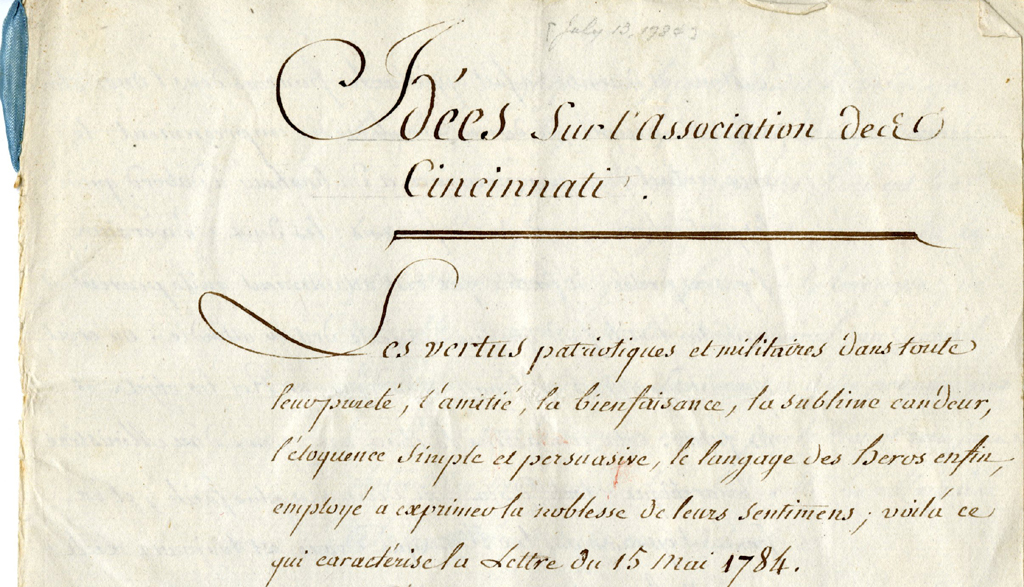 [July 13, 1784]
Idées Sur l'Association de
Cincinnati.
Les vertus patriotiques et militaires dans toute
leur pureté, l'amitié, la bienfaisance, la sublime candeur,
l'éloquence simple et persuasive, le langage des heros enfin,
employé a exprimer la noblesse de leurs sentimens; voilà ce
qui caractérise la Lettre du 15 Mai 1784.